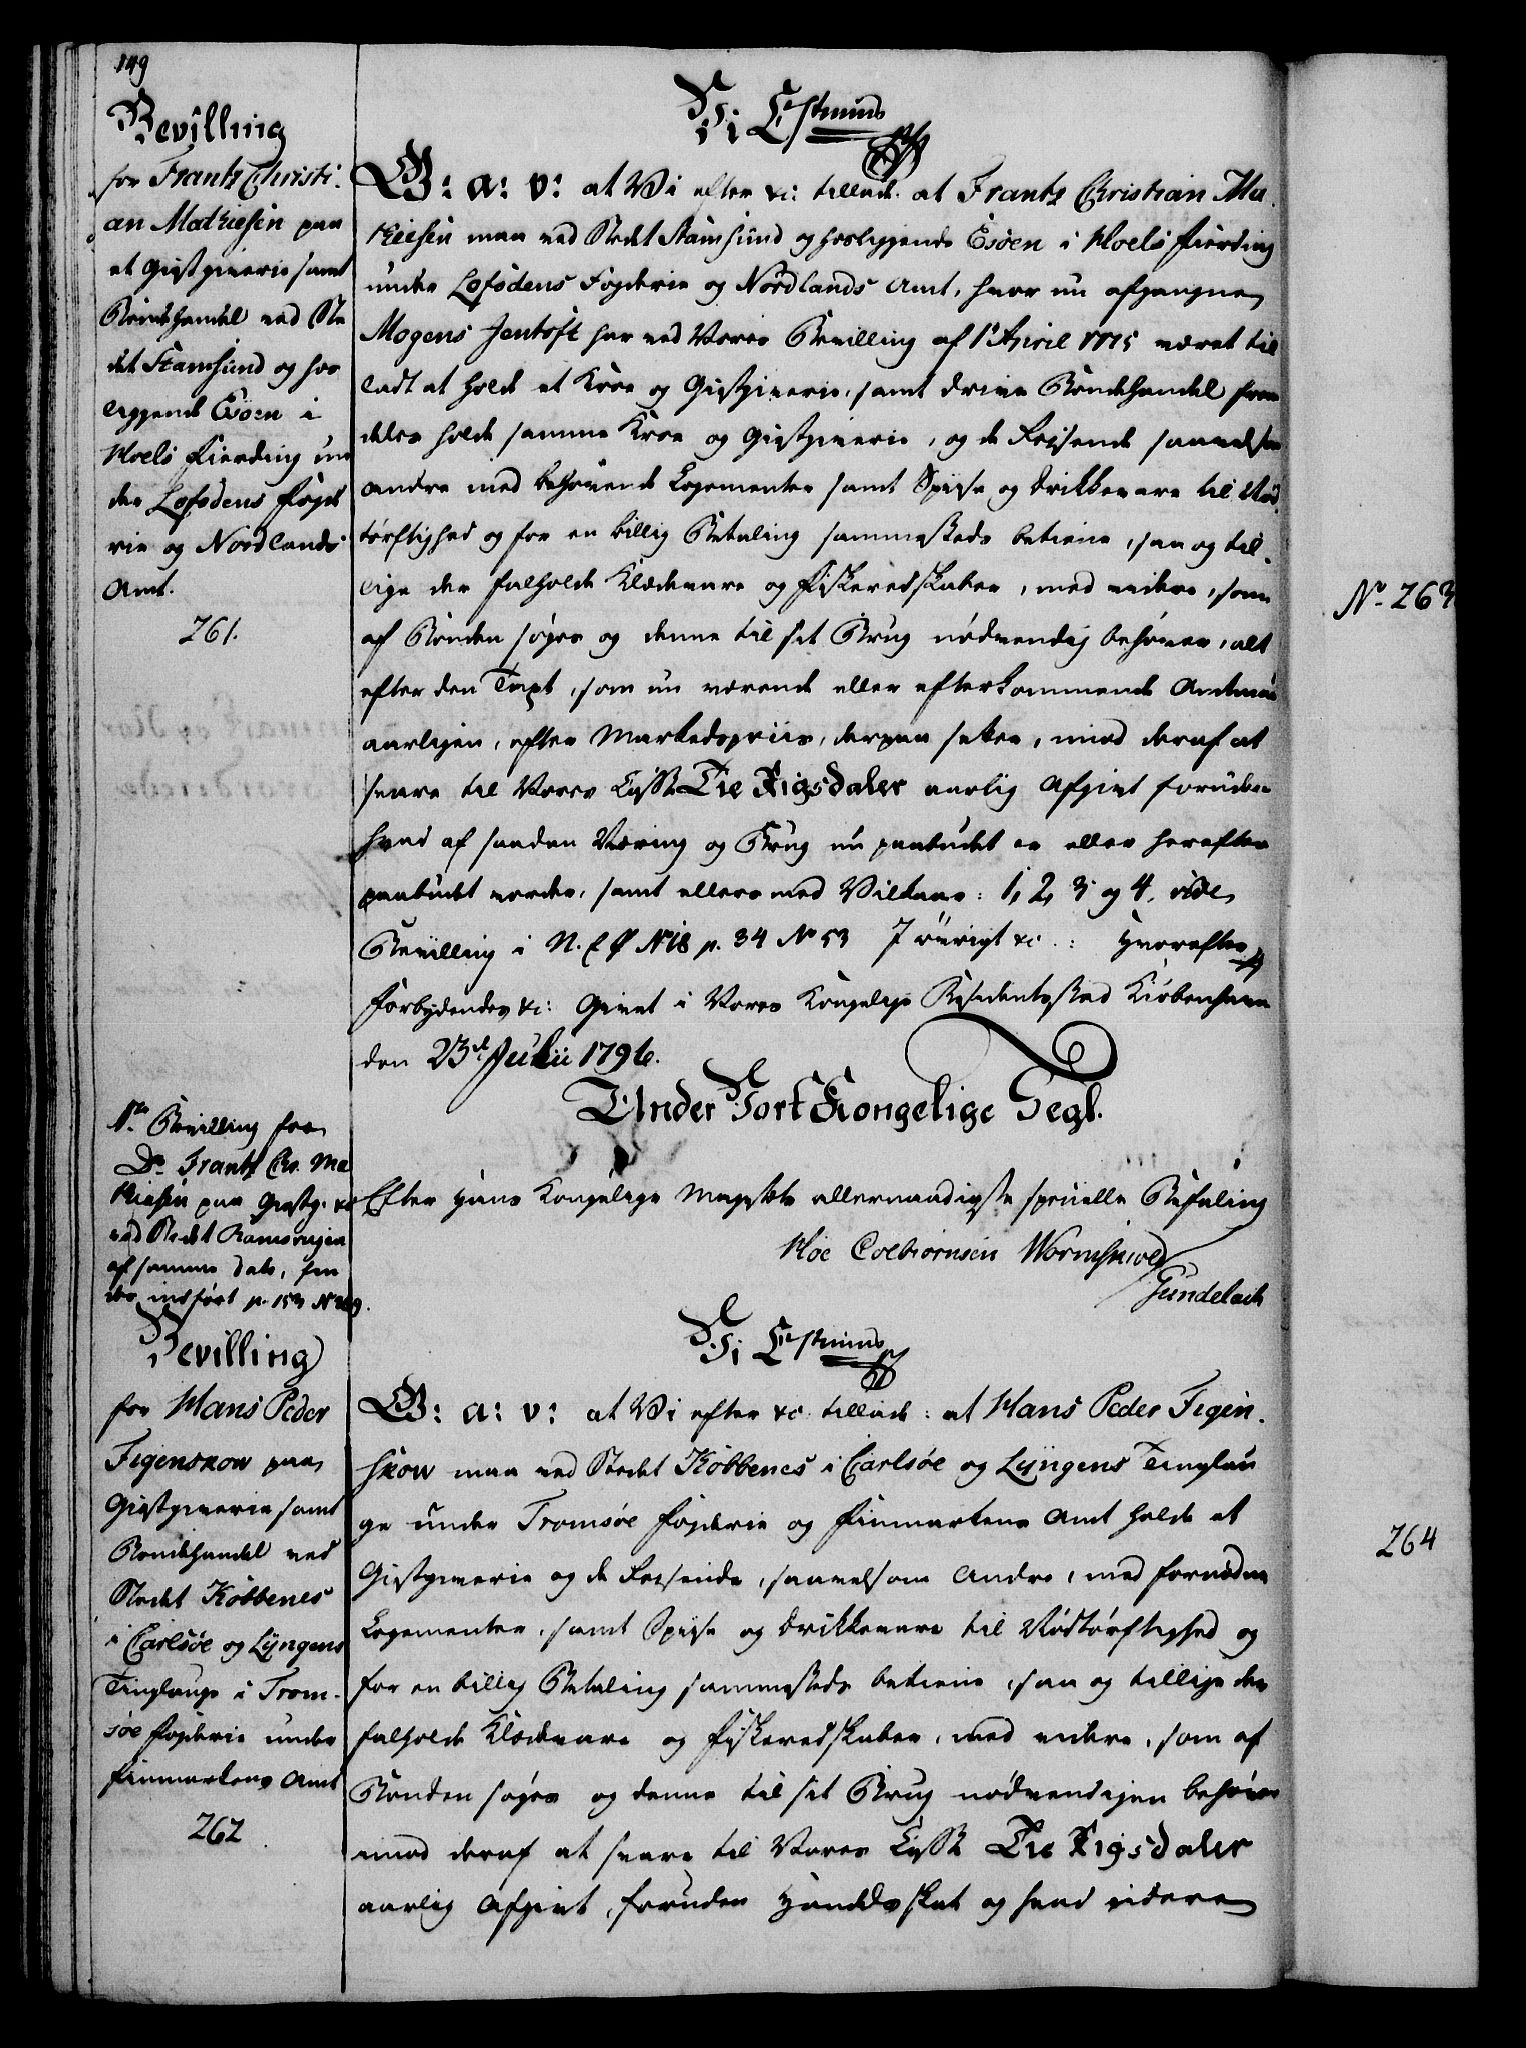 149
Bevilling
for Frantz Christi-
an Mathiesen paa
et Giestgiverie samt
Bondehandel ved Ste
det Stamsund og hos
liggende Esøen i
Hoels Fierding un
der Lofodens Fogde
rie og Nordlands
Amt.
261.
Vi C 7timus
G: a: v: at Vi efter &c: tillade: at Frantz Christian Ma-
thiesen maa ved Stedet Stamsund og hosliggende Esøen i Hoels Fierding
under Lofodens Fogderie og Nordlands Amt, hvor nu afgangne
Mogens Jentoft har ved Vores Bevilling af 1 April 1775 været til
ladt at holde et Kroe og Giestgiverie, samt drive Bondehandel frem
deles holde samme Kroe og Giestgiverie, og de Reisende saavelsom
andre med behøvende Logementer samt Spise og Drikkevare til Nød
tørftighed og for en billig Betaling sammesteds betiene, saa og til-
lige der falholde Klædevare og Fiskeredskaber, med videre, som
af Bonden søges og denne til sit Brug nødvendig behøver, alt
efter den Taxt, som nu værende eller efterkommende Amtmand
aarligen, efter Markedspriis, derpaa setter, imod deraf at
svare til Vores Casse Tie Rigsdaler aarlig Afgivt foruden
hvad af saadan Næring og Brug nu paabudet er eller herefter
paabudet vorder, samt ellers med Vilkaar: 1, 2, 3 og 4, vide
Bevilling i N. C. Ø No 18 p. 34 No 53 I øvrigt &c.: Hvorefter
Forbydendes &c: Givet i Vores Kongelige Residentzstad Kiøbenhavn
den 23de Julii 1796.
Under Vort Kongelige Segl.
Efter Hans Kongelige Majestets allernaadigste specielle Befaling
Hoe Colbiørnsen Wormskiold
Gundelach
1te Bevilling for
Do Frantz Chr. Ma
thiesen paa Giestg. &c
ved Stedet Ramsvigen
af samme Dato, fin
des indført p. 153 No 269.
Bevilling
for Hans Peder
Figenskow paa
Giestgiverie samt
Bondehandel ved
Stedet Kobbenes
i Carlsøe og Lyngens
Tinglauge i Trom-
søe Fogderie under
Finmarkens Amt
262
Vi C 7timus
G: a: v: at Vi efter &c. tillade: at Hans Peder Figen-
skow maa ved Stedet Kobbenes i Carlsøe og Lyngens Tinglau
ge under Tromsøe Fogderie og Finmarkens Amt holde et
Giestgiverie og de Reisende, saavelsom Andre, med fornødne
Logementer, samt Spise og Drikkevare til Nødtørftighed og
for en billig Betaling sammesteds betiene, saa og tillige der
falholde Klædevare og Fiskeredskaber, med videre, som af
Bonden søges og denne til sit Brug nødvendigen behøver
imod deraf at svare til Vores Casse Tie Rigsdaler
aarlig Afgivt, foruden Handelsskat og hvad videre
No. 263
264